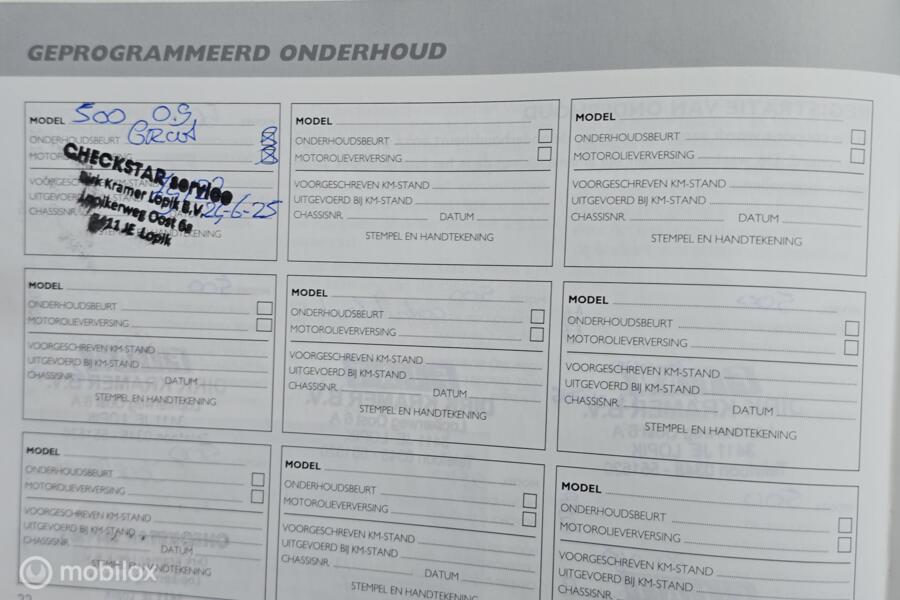 GEPROGRAMMEERD ONDERHOUD
MODEL 500 0.9
ONDERHOUDSBEURT
MOTOR
CHECKSTAR service
Dirk Kramer Lopik B.V.
Lopikerweg Oost 6a
3411 JE Lopik
24-6-25
CHASSISNR.
MODEL
ONDERHOUDSBEURT
MOTOROLIEVERVERSING
VOORGESCHREVEN KM-STAND
UITGEVOERD BIJ KM-STAND
CHASSISNR. DATUM
STEMPEL EN HANDTEKENING
MODEL
ONDERHOUDSBEURT
MOTOROLIEVERVERSING
VOORGESCHREVEN KM-STAND
UITGEVOERD BIJ KM-STAND
CHASSISNR. DATUM
STEMPEL EN HANDTEKENING
MODEL
ONDERHOUDSBEURT
MOTOROLIEVERVERSING
VOORGESCHREVEN KM-STAND
UITGEVOERD BIJ KM-STAND
CHASSISNR. DATUM
STEMPEL EN HANDTEKENING
MODEL
ONDERHOUDSBEURT
MOTOROLIEVERVERSING
VOORGESCHREVEN KM-STAND
UITGEVOERD BIJ KM-STAND
CHASSISNR. DATUM
STEMPEL EN HANDTEKENING
MODEL
ONDERHOUDSBEURT
MOTOROLIEVERVERSING
VOORGESCHREVEN KM-STAND
UITGEVOERD BIJ KM-STAND
CHASSISNR. DATUM
STEMPEL EN HANDTEKENING
MODEL
ONDERHOUDSBEURT
MOTOROLIEVERVERSING
VOORGESCHREVEN KM-STAND
UITGEVOERD BIJ KM-STAND
CHASSISNR. DATUM
STEMPEL EN HANDTEKENING
MODEL
ONDERHOUDSBEURT
MOTOROLIEVERVERSING
VOORGESCHREVEN KM-STAND
UITGEVOERD BIJ KM-STAND
CHASSISNR. DATUM
STEMPEL EN HANDTEKENING
MODEL
ONDERHOUDSBEURT
MOTOROLIEVERVERSING
VOORGESCHREVEN KM-STAND
UITGEVOERD BIJ KM-STAND
CHASSISNR. DATUM
mobilox